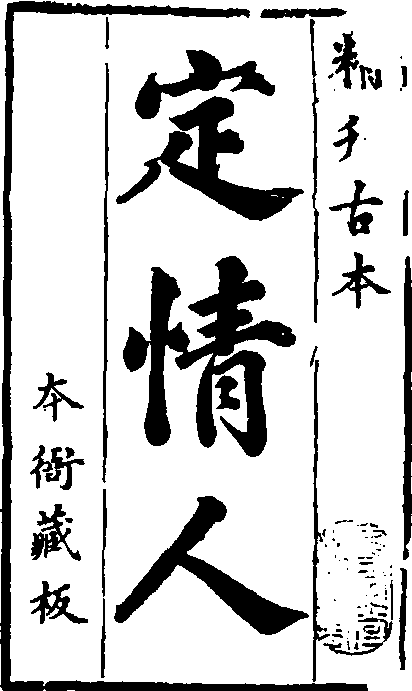 古本
定情人
本衙藏板